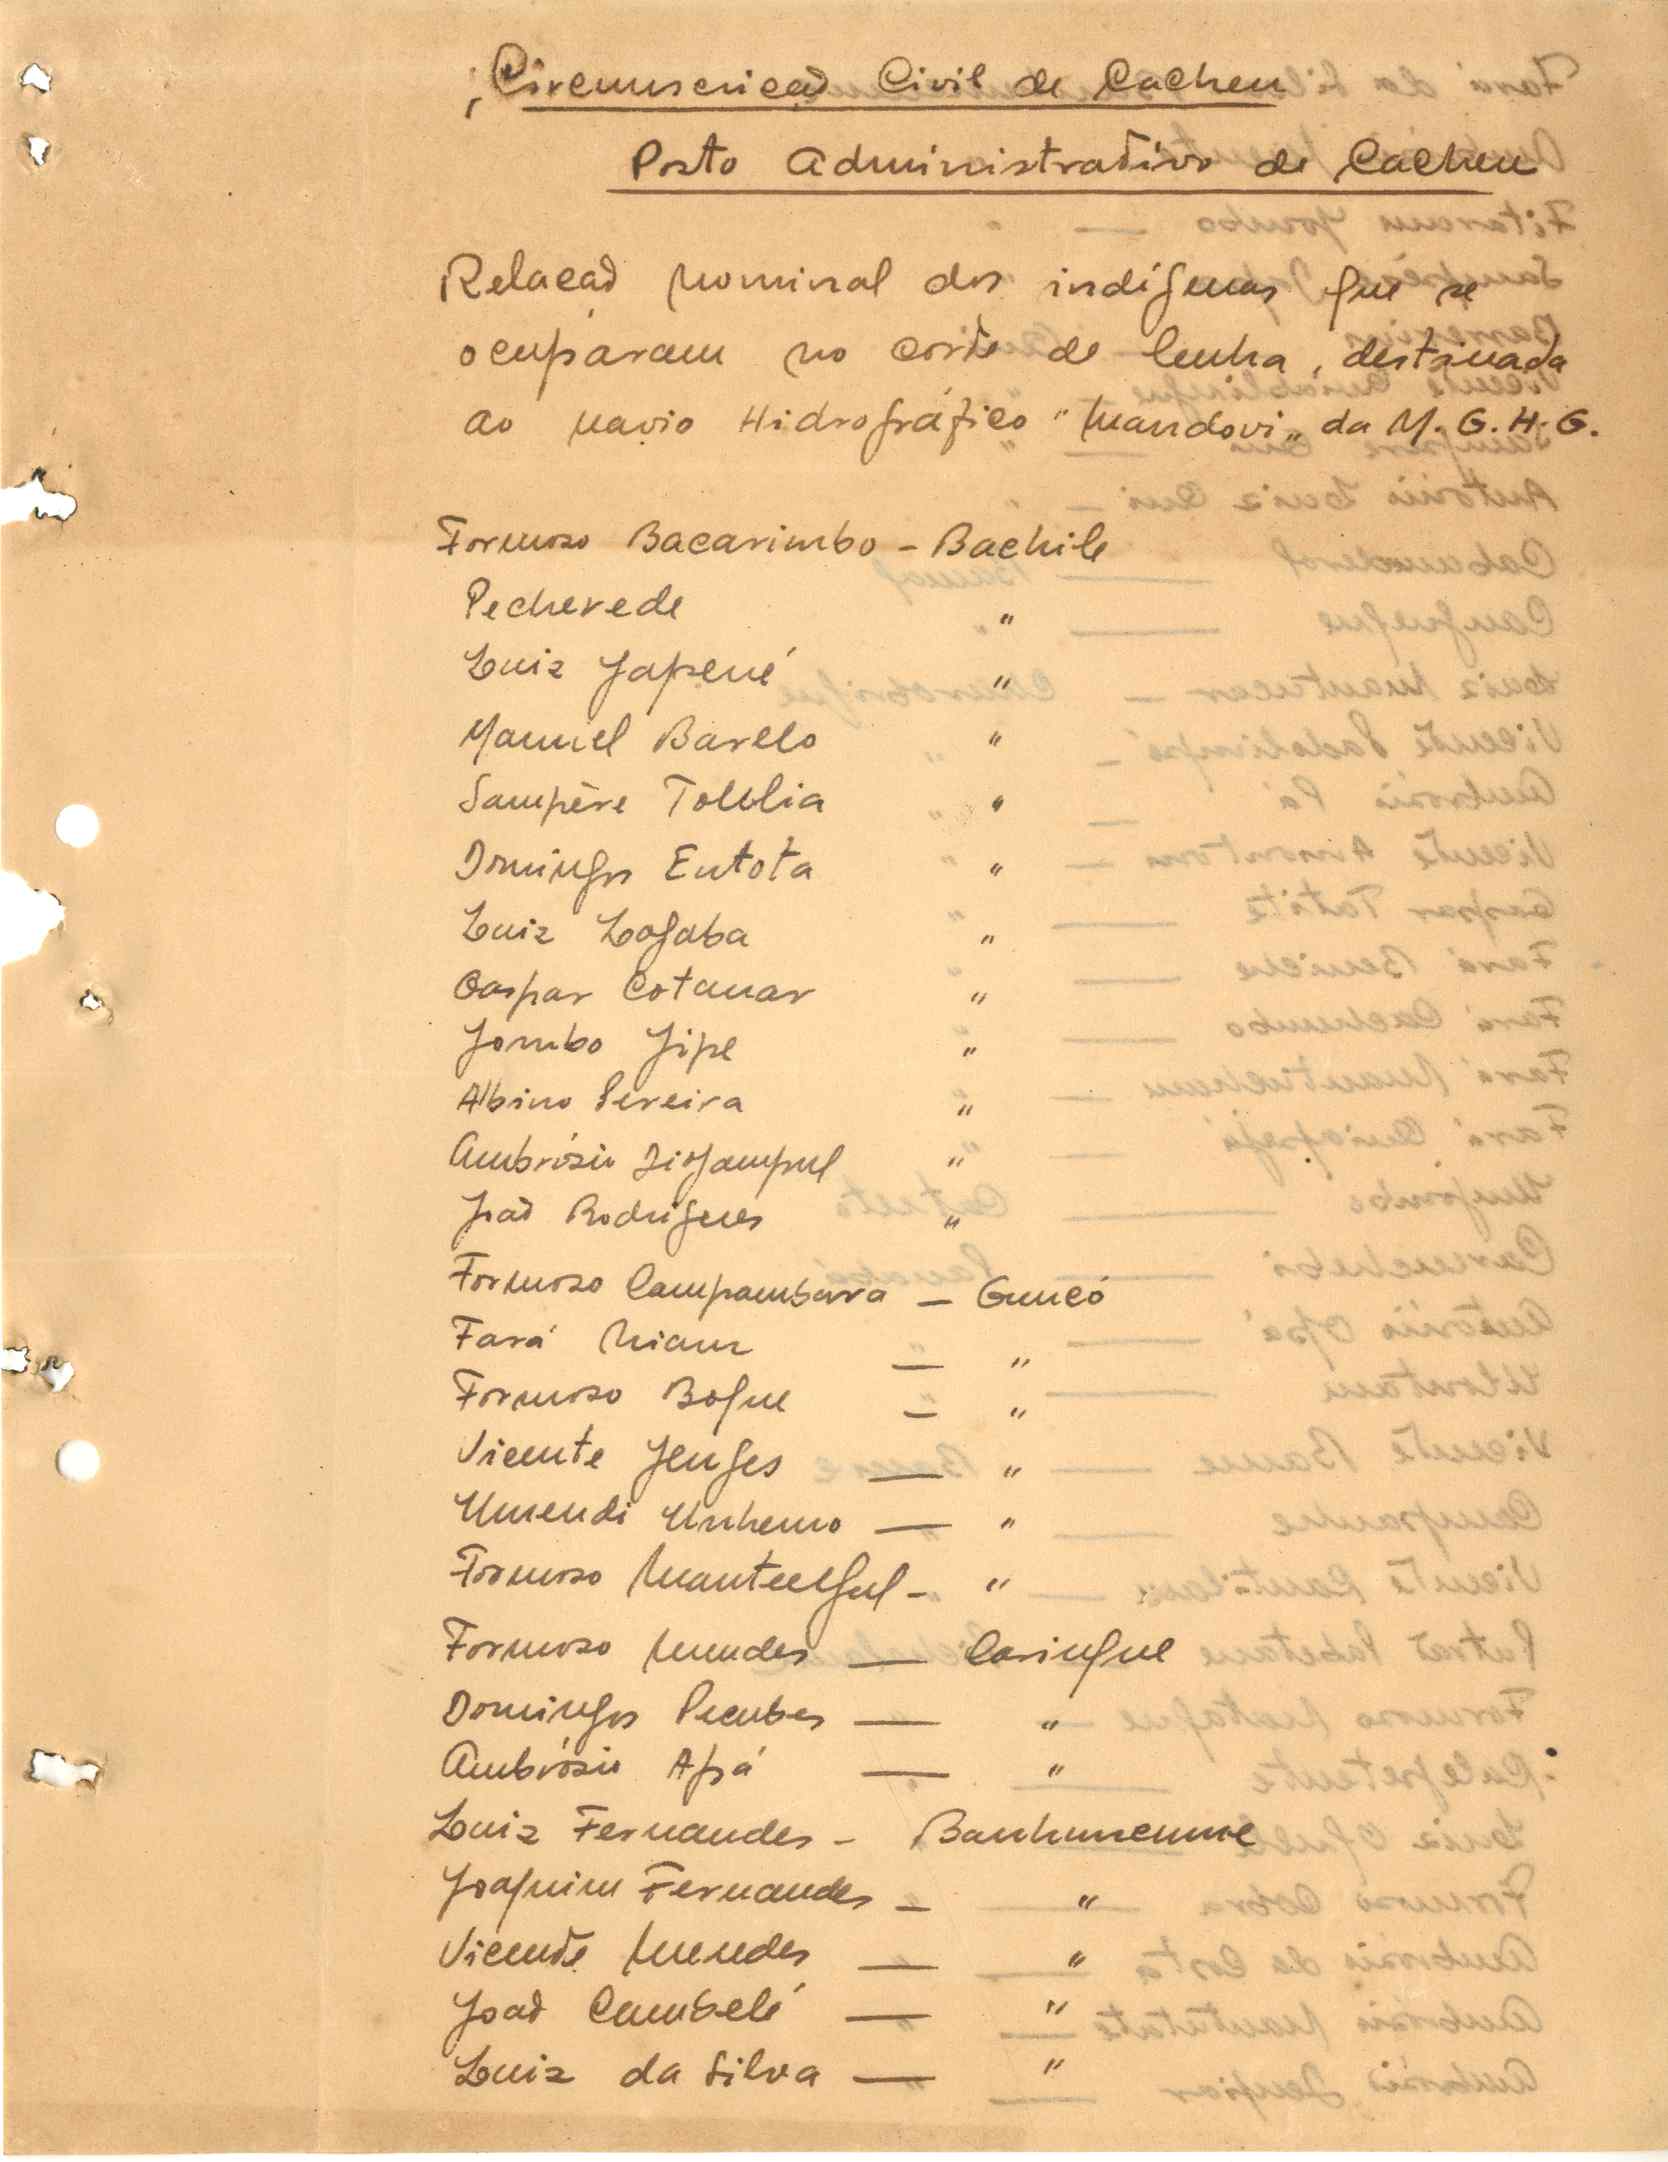 Circunscrição Civil de Cacheu
Posto Administrativo de Cacheu
Relação nominal dos indígenas que se
ocupáram no corte de lenha, destinada
ao navio Hidrográfico "Mandovi" da M. G. H. G.
Formoso Bacarimbo - Bachile
Pecherede "
Luiz Japené "
Manuel Barelo "
Sampère "
Domingos Entota "
Luiz Logaba "
Gaspar Cotanar "
Jombo Jipe "
Albino Pereira "
Ambrósio "
João Rodrigues "
Formoso Campambara - Guncó
Fará Niam — "
Formoso Bogue — "
Vicente Jenges — "
Umendi Unhemo — "
Formoso - "
Formoso Mendes — Caringue
Domingos Pecubes — "
Ambrósio Apá — "
Luiz Fernandes -
Joaquim Fernandes - "
Vicente Mendes — "
João Cambelé — "
Luiz da Silva — "